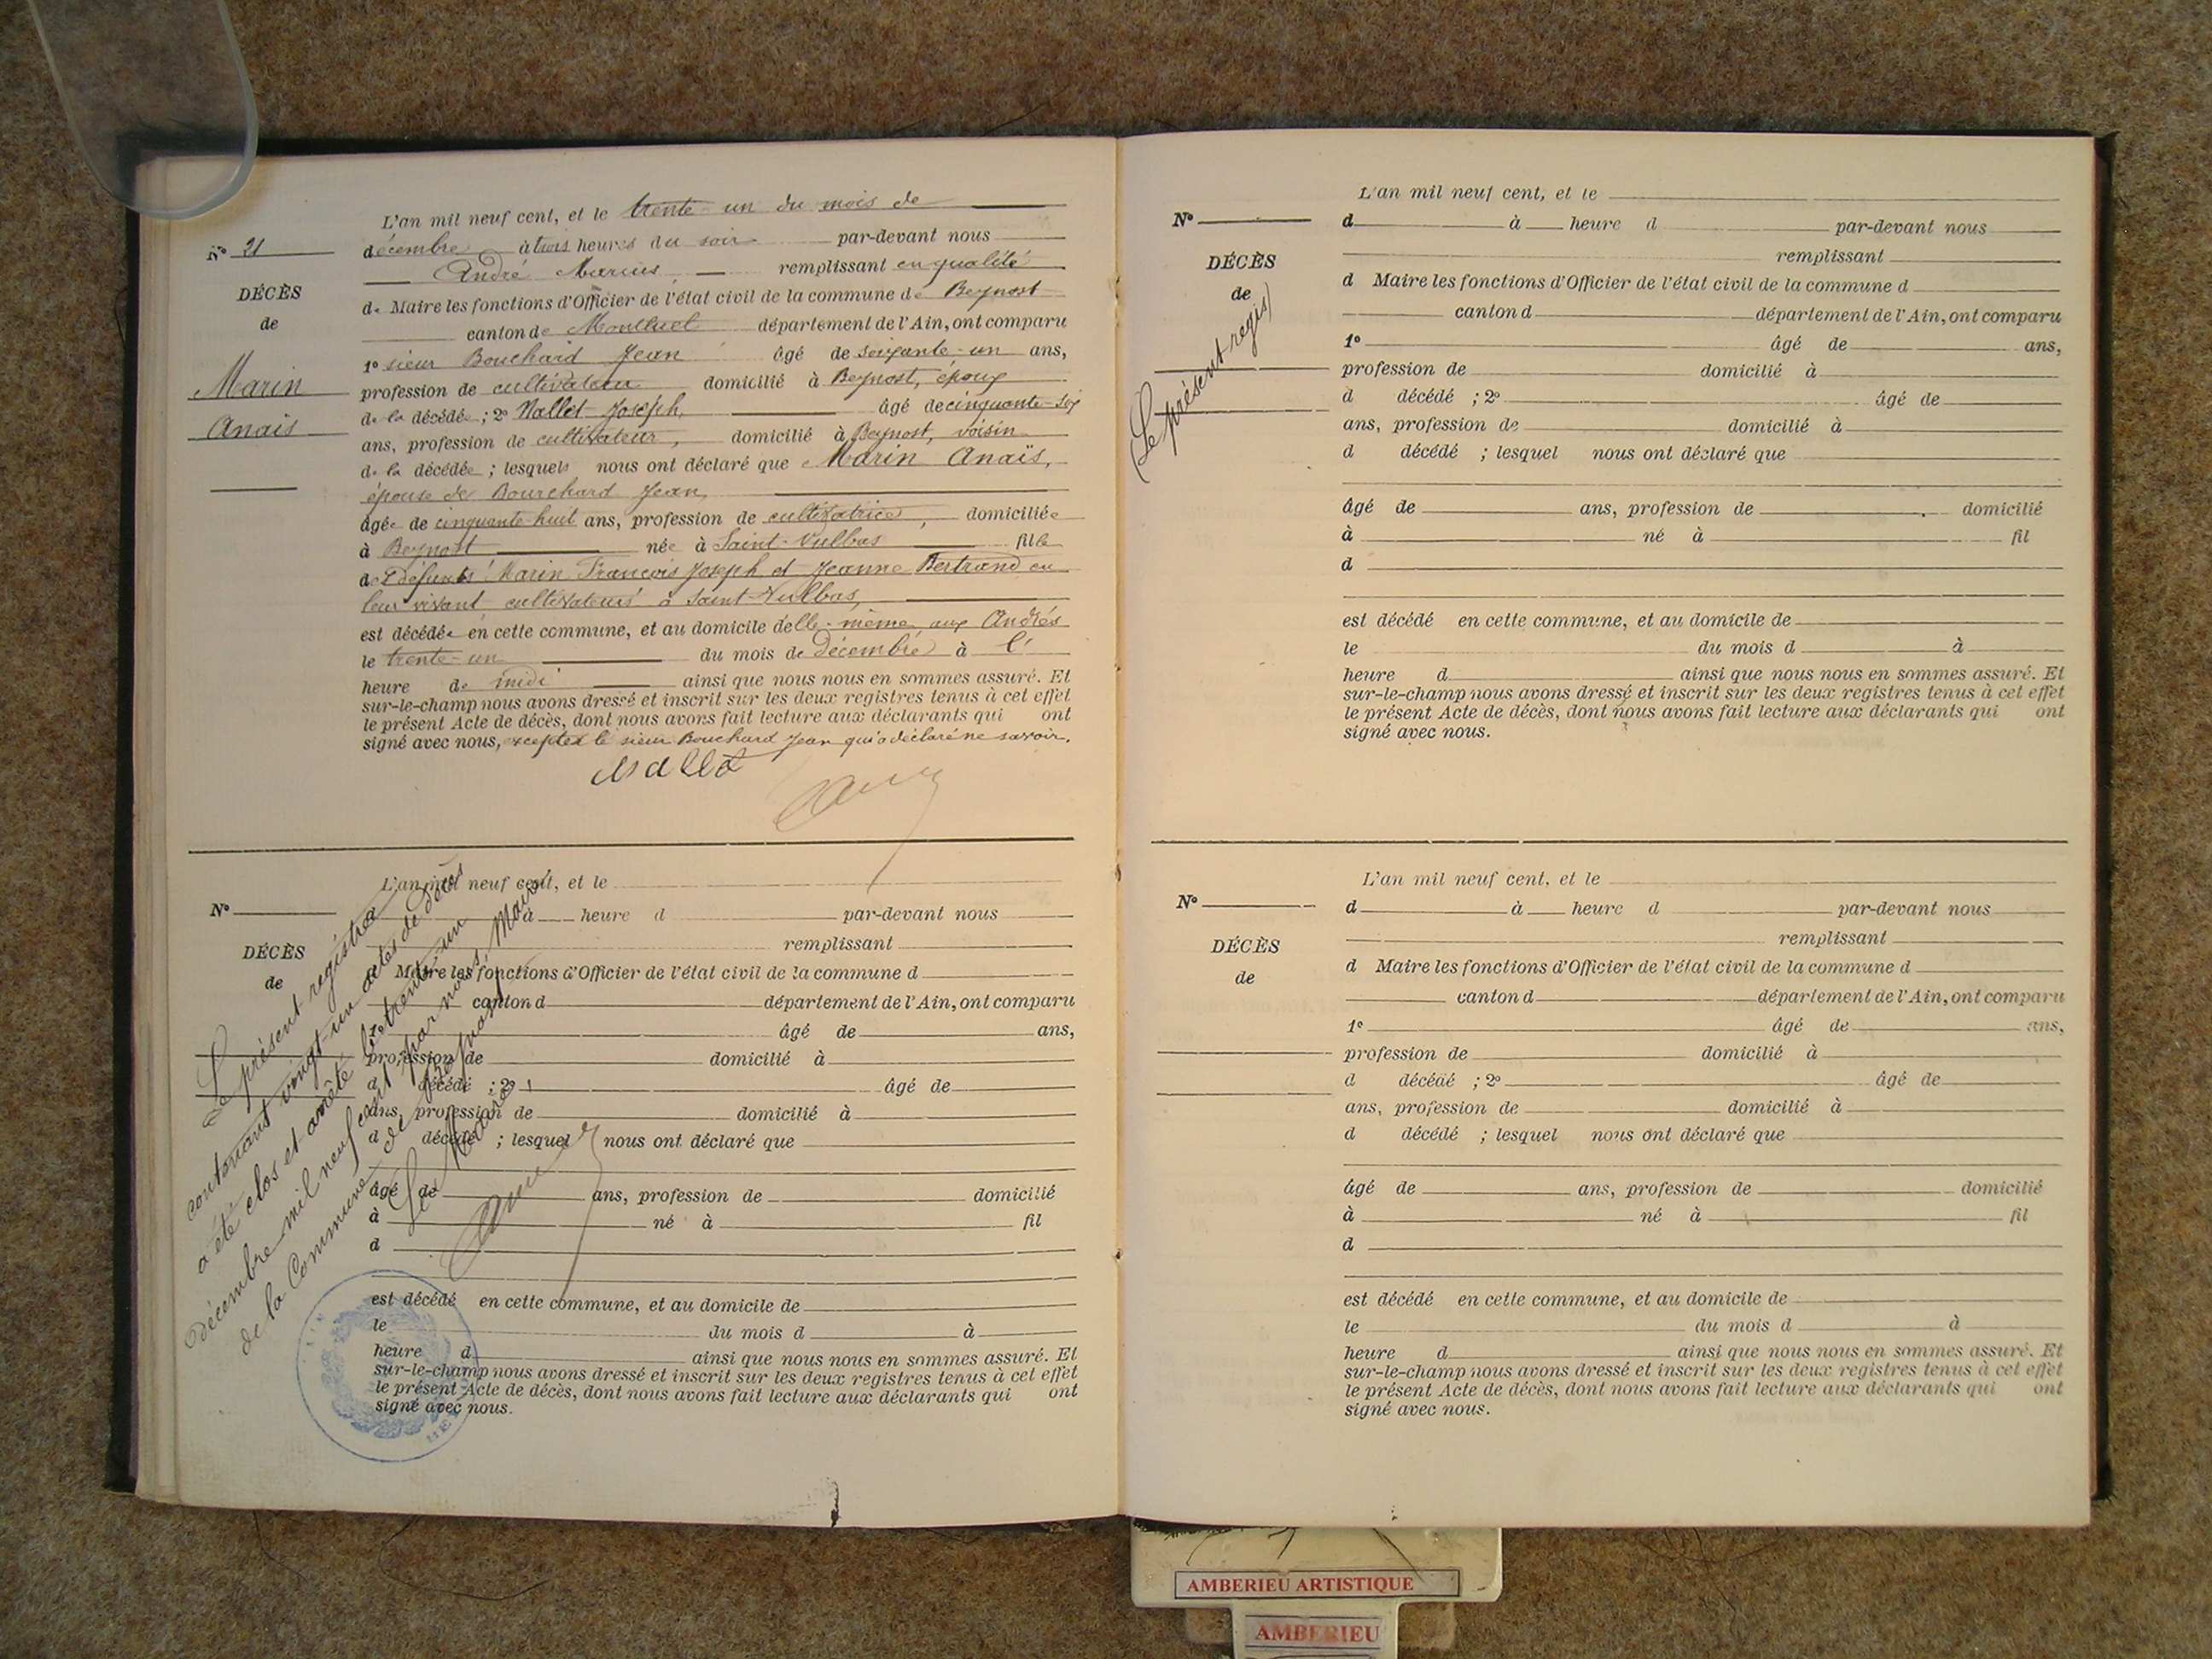 L'an mil neuf cent, et le trente-un du mois de
N° 21
décembre à trois heures du soir par-devant nous
André Marius, remplissant en qualité
DÉCÈS
de
de Maire les fonctions d'Officier de l'état civil de la commune de Beynost
canton de Montluel département de l'Ain, ont comparu
1° sieur Bouchard Jean âgé de soixante-un ans,
Marin
Anaïs
profession de cultivateur domicilié à Beynost, époux
de la décédée ; 2° Nallet Joseph, âgé de cinquante-six
ans, profession de cultivateur, domicilié à Beynost, voisin
de la décédée ; lesquels nous ont déclaré que Marin Anaïs,
épouse de Bourchard Jean,
âgée de cinquante-huit ans, profession de cultivatrice, domiciliée
à Beynost née à Saint-Vulbas fille
de défunts Marin François Joseph et Jeanne Bertrand en
leur vivant cultivateurs à Saint-Vulbas,
est décédée en cette commune, et au domicile d'elle-même aux Andrés
le trente-un du mois de Décembre à l'
heure de midi ainsi que nous nous en sommes assuré. Et
sur-le-champ nous avons dressé et inscrit sur les deux registres tenus à cet effet
le présent Acte de décès, dont nous avons fait lecture aux déclarants qui ont
signé avec nous, excepté le sieur Bouchard Jean qui a déclaré ne savoir.
L'an mil neuf cent, et le
N°
à heure d par-devant nous
remplissant
DÉCÈS
de
Maire les fonctions d'Officier de l'état civil de la commune d
canton d département de l'Ain, ont comparu
âgé de ans,
profession de domicilié à
d décédé ; 2° âgé de
ans, profession de domicilié à
d décédé ; lesquel nous ont déclaré que
âgé de ans, profession de domicilié
à né à fil
d
est décédé en cette commune, et au domicile de
le du mois d à
heure d ainsi que nous nous en sommes assuré. Et
sur-le-champ nous avons dressé et inscrit sur les deux registres tenus à cet effet
le présent Acte de décès, dont nous avons fait lecture aux déclarants qui ont
signé avec nous.
Le présent registre
contenant vingt-un actes de décès
a été clos et arrêté le trente-un
Décembre mil neuf cent par nous Maire
de la Commune de Beynost
Le Maire
L'an mil neuf cent, et le
N°
d à heure d par-devant nous
remplissant
DÉCÈS
de
d Maire les fonctions d'Officier de l'état civil de la commune d
canton d département de l'Ain, ont comparu
1° âgé de ans,
profession de domicilié à
d décédé ; 2° âgé de
ans, profession de domicilié à
d décédé ; lesquel nous ont déclaré que
âgé de ans, profession de domicilié
à né à fil
d
est décédé en cette commune, et au domicile de
le du mois d à
heure d ainsi que nous nous en sommes assuré. Et
sur-le-champ nous avons dressé et inscrit sur les deux registres tenus à cet effet
le présent Acte de décès, dont nous avons fait lecture aux déclarants qui ont
signé avec nous.
(Le présent regis)
L'an mil neuf cent, et le
N°
d à heure d par-devant nous
remplissant
DÉCÈS
de
d Maire les fonctions d'Officier de l'état civil de la commune d
canton d département de l'Ain, ont comparu
1° âgé de ans,
profession de domicilié à
d décédé ; 2° âgé de
ans, profession de domicilié à
d décédé ; lesquel nous ont déclaré que
âgé de ans, profession de domicilié
à né à fil
d
est décédé en cette commune, et au domicile de
le du mois d à
heure d ainsi que nous nous en sommes assuré. Et
sur-le-champ nous avons dressé et inscrit sur les deux registres tenus à cet effet
le présent Acte de décès, dont nous avons fait lecture aux déclarants qui ont
signé avec nous.
AMBERIEU ARTISTIQUE
AMBERIEU